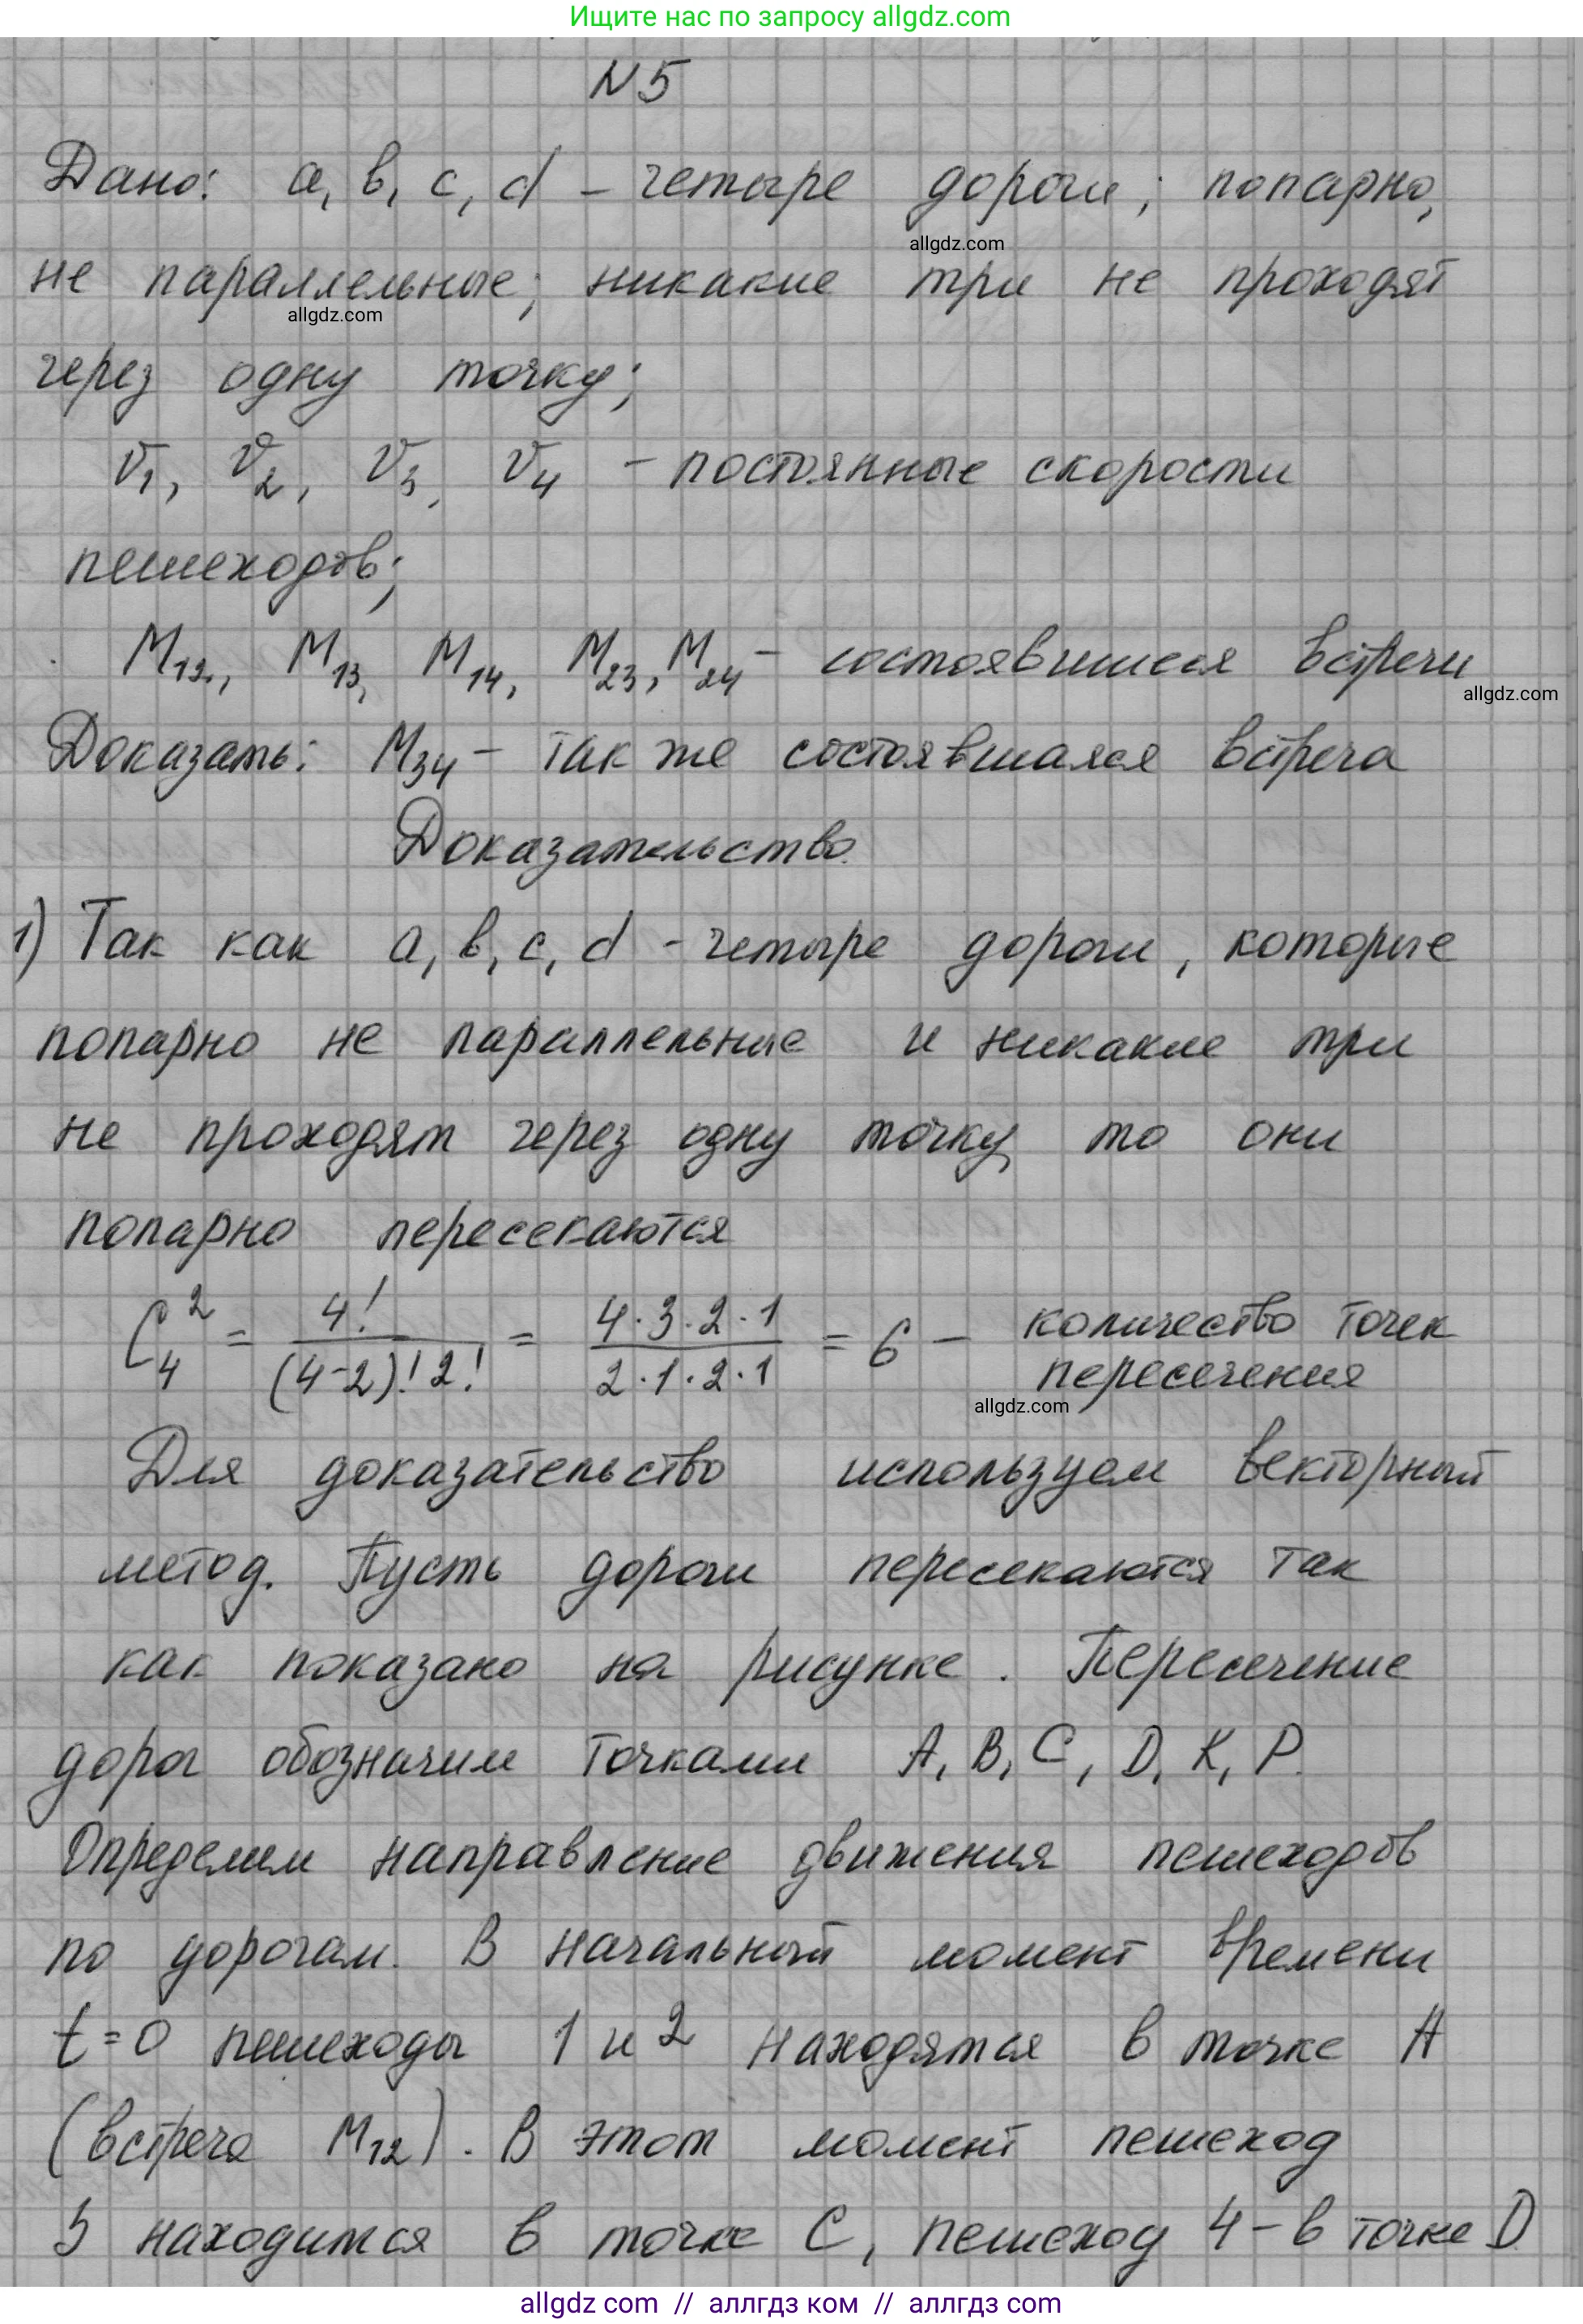 Ищите нас по запросу allgdz.com
N5
Дано: a, b, c, d – четыре дороги; попарно,
allgdz.com
не параллельные; никакие три не проходят
allgdz.com
через одну точку;
V1, V2, V3, V4 – постоянные скорости
пешеходов;
M12, M13, M14, M23, M24 – состоявшиеся встречи
allgdz.com
Доказать: M34 – так же состоявшаяся встреча
Доказательство.
1) Так как a, b, c, d – четыре дороги, которые
попарно не параллельные и никакие три
не проходят через одну точку, то они
попарно пересекаются
C₄² = 4!/((4-2)! 2!) = (4·3·2·1)/(2·1·2·1) = 6 – количество точек
пересечения
allgdz.com
Для доказательство используем векторный
метод. Пусть дороги пересекаются так
как показано на рисунке. Пересечение
дорог обозначим точками A, B, C, D, K, P.
Определим направление движения пешеходов
по дорогам. В начальный момент времени
t=0 пешеходы 1 и 2 находятся в точке A
(встреча M12). В этот момент пешеход
3 находится в точке C, пешеход 4 – в точке D
allgdz com // аллгдз ком // аллгдз com